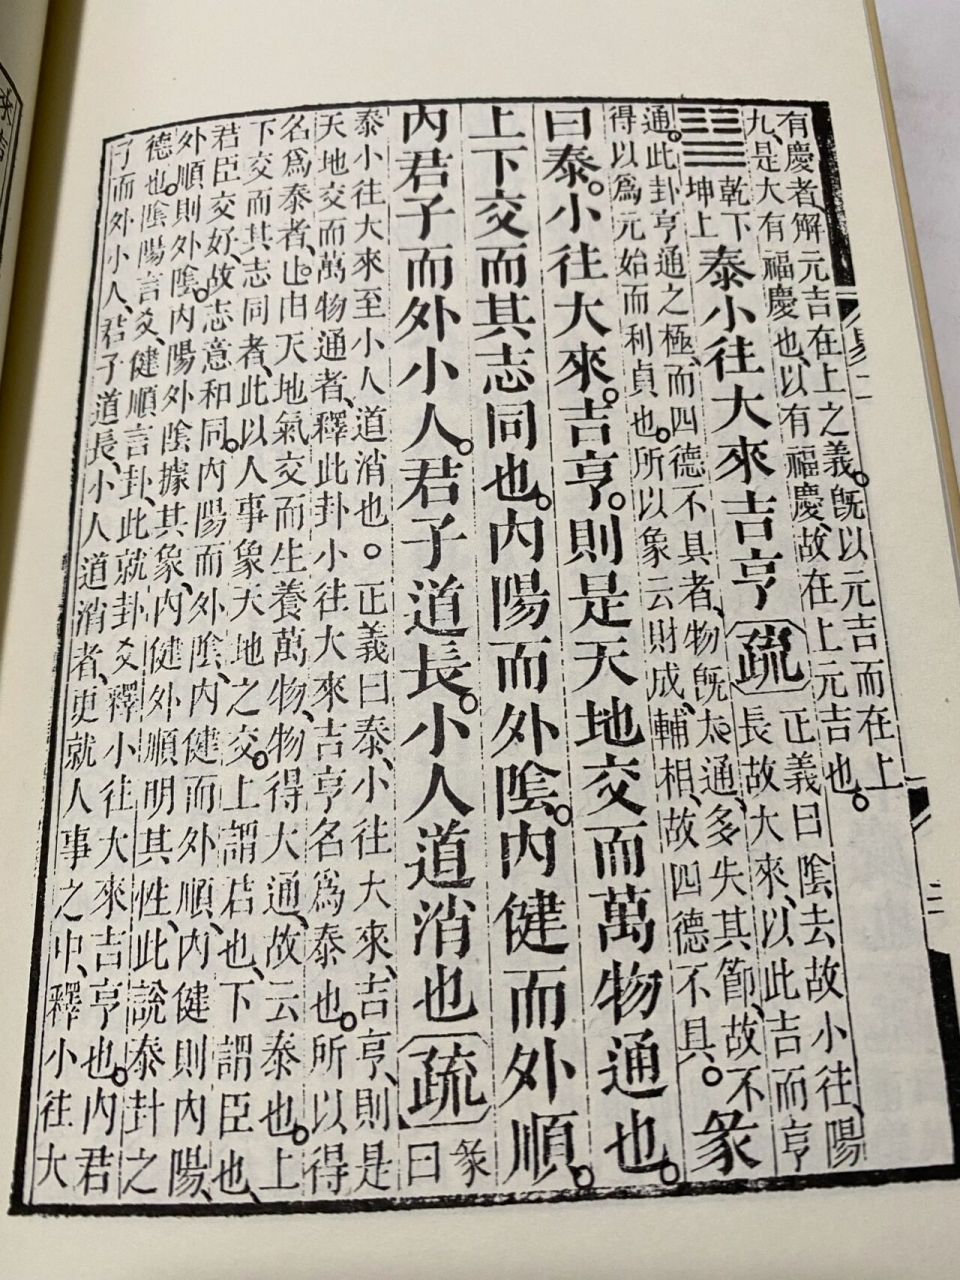 有慶者、解元吉在上之義。旣以元吉而在上
九、是大有福慶也、以有福慶、故在上元吉也。
乾下
坤上
泰小往大來吉亨〔疏〕
正義曰陰去故小往、陽
長故大來、以此吉而亨
通。此卦亨通之極、而四德不具者、物旣太通、多失其節、故不
得以爲元始而利貞也。所以象云財成、輔相、故四德不具。
彖
曰泰。小往大來。吉亨。則是天地交而萬物通也。
上下交而其志同也。內陽而外陰。內健而外順。
內君子而外小人。君子道長。小人道消也〔疏〕
彖
曰
泰小往大來至小人道消也。○正義曰泰、小往大來、吉亨、則是
天地交而萬物通者、釋此卦小往大來吉亨名爲泰也。所以得
名爲泰者、也由天地氣交而生養萬物、物得大通、故云泰也。上
下交而其志同者、此以人事象天地之交。上謂君也、下謂臣也、
君臣交好、故志意和同。內陽而外陰、內健而外順、內健則內陽、
外順則外陰。內陽外陰據其象、內健外順明其性、此說泰卦之
德也。陰陽言爻、健順言卦、此就卦爻釋小往大來吉亨也。內君
子而外小人、君子道長、小人道消者、更就人事之中、釋小往大
易二